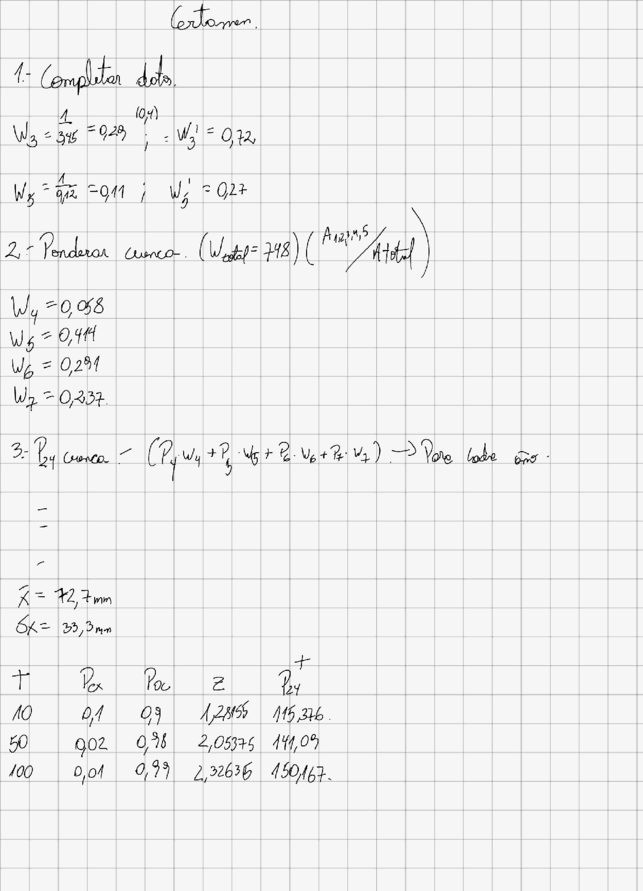 Certamen.
1.- Completar datos.
W3 = 1/3,45 = 0,29 (0,4) ; = W3' = 0,72
W5 = 1/9,12 = 0,11 ; W5' = 0,27
2.- Ponderar cuenca. (Wtotal = 748) (A1,2,3,4,5/Atotal)
W4 = 0,058
W5 = 0,414
W6 = 0,291
W7 = 0,237
3.- P24 cuenca - (P4·W4 + P5·W5 + P6·W6 + P7·W7) → Para cada año.
-
-
-
x̄ = 72,7mm
Sx = 33,3mm
T Pex Poc Z P24^T
10 0,1 0,9 1,28155 115,376.
50 0,02 0,98 2,05375 141,09
100 0,01 0,99 2,32635 150,167.